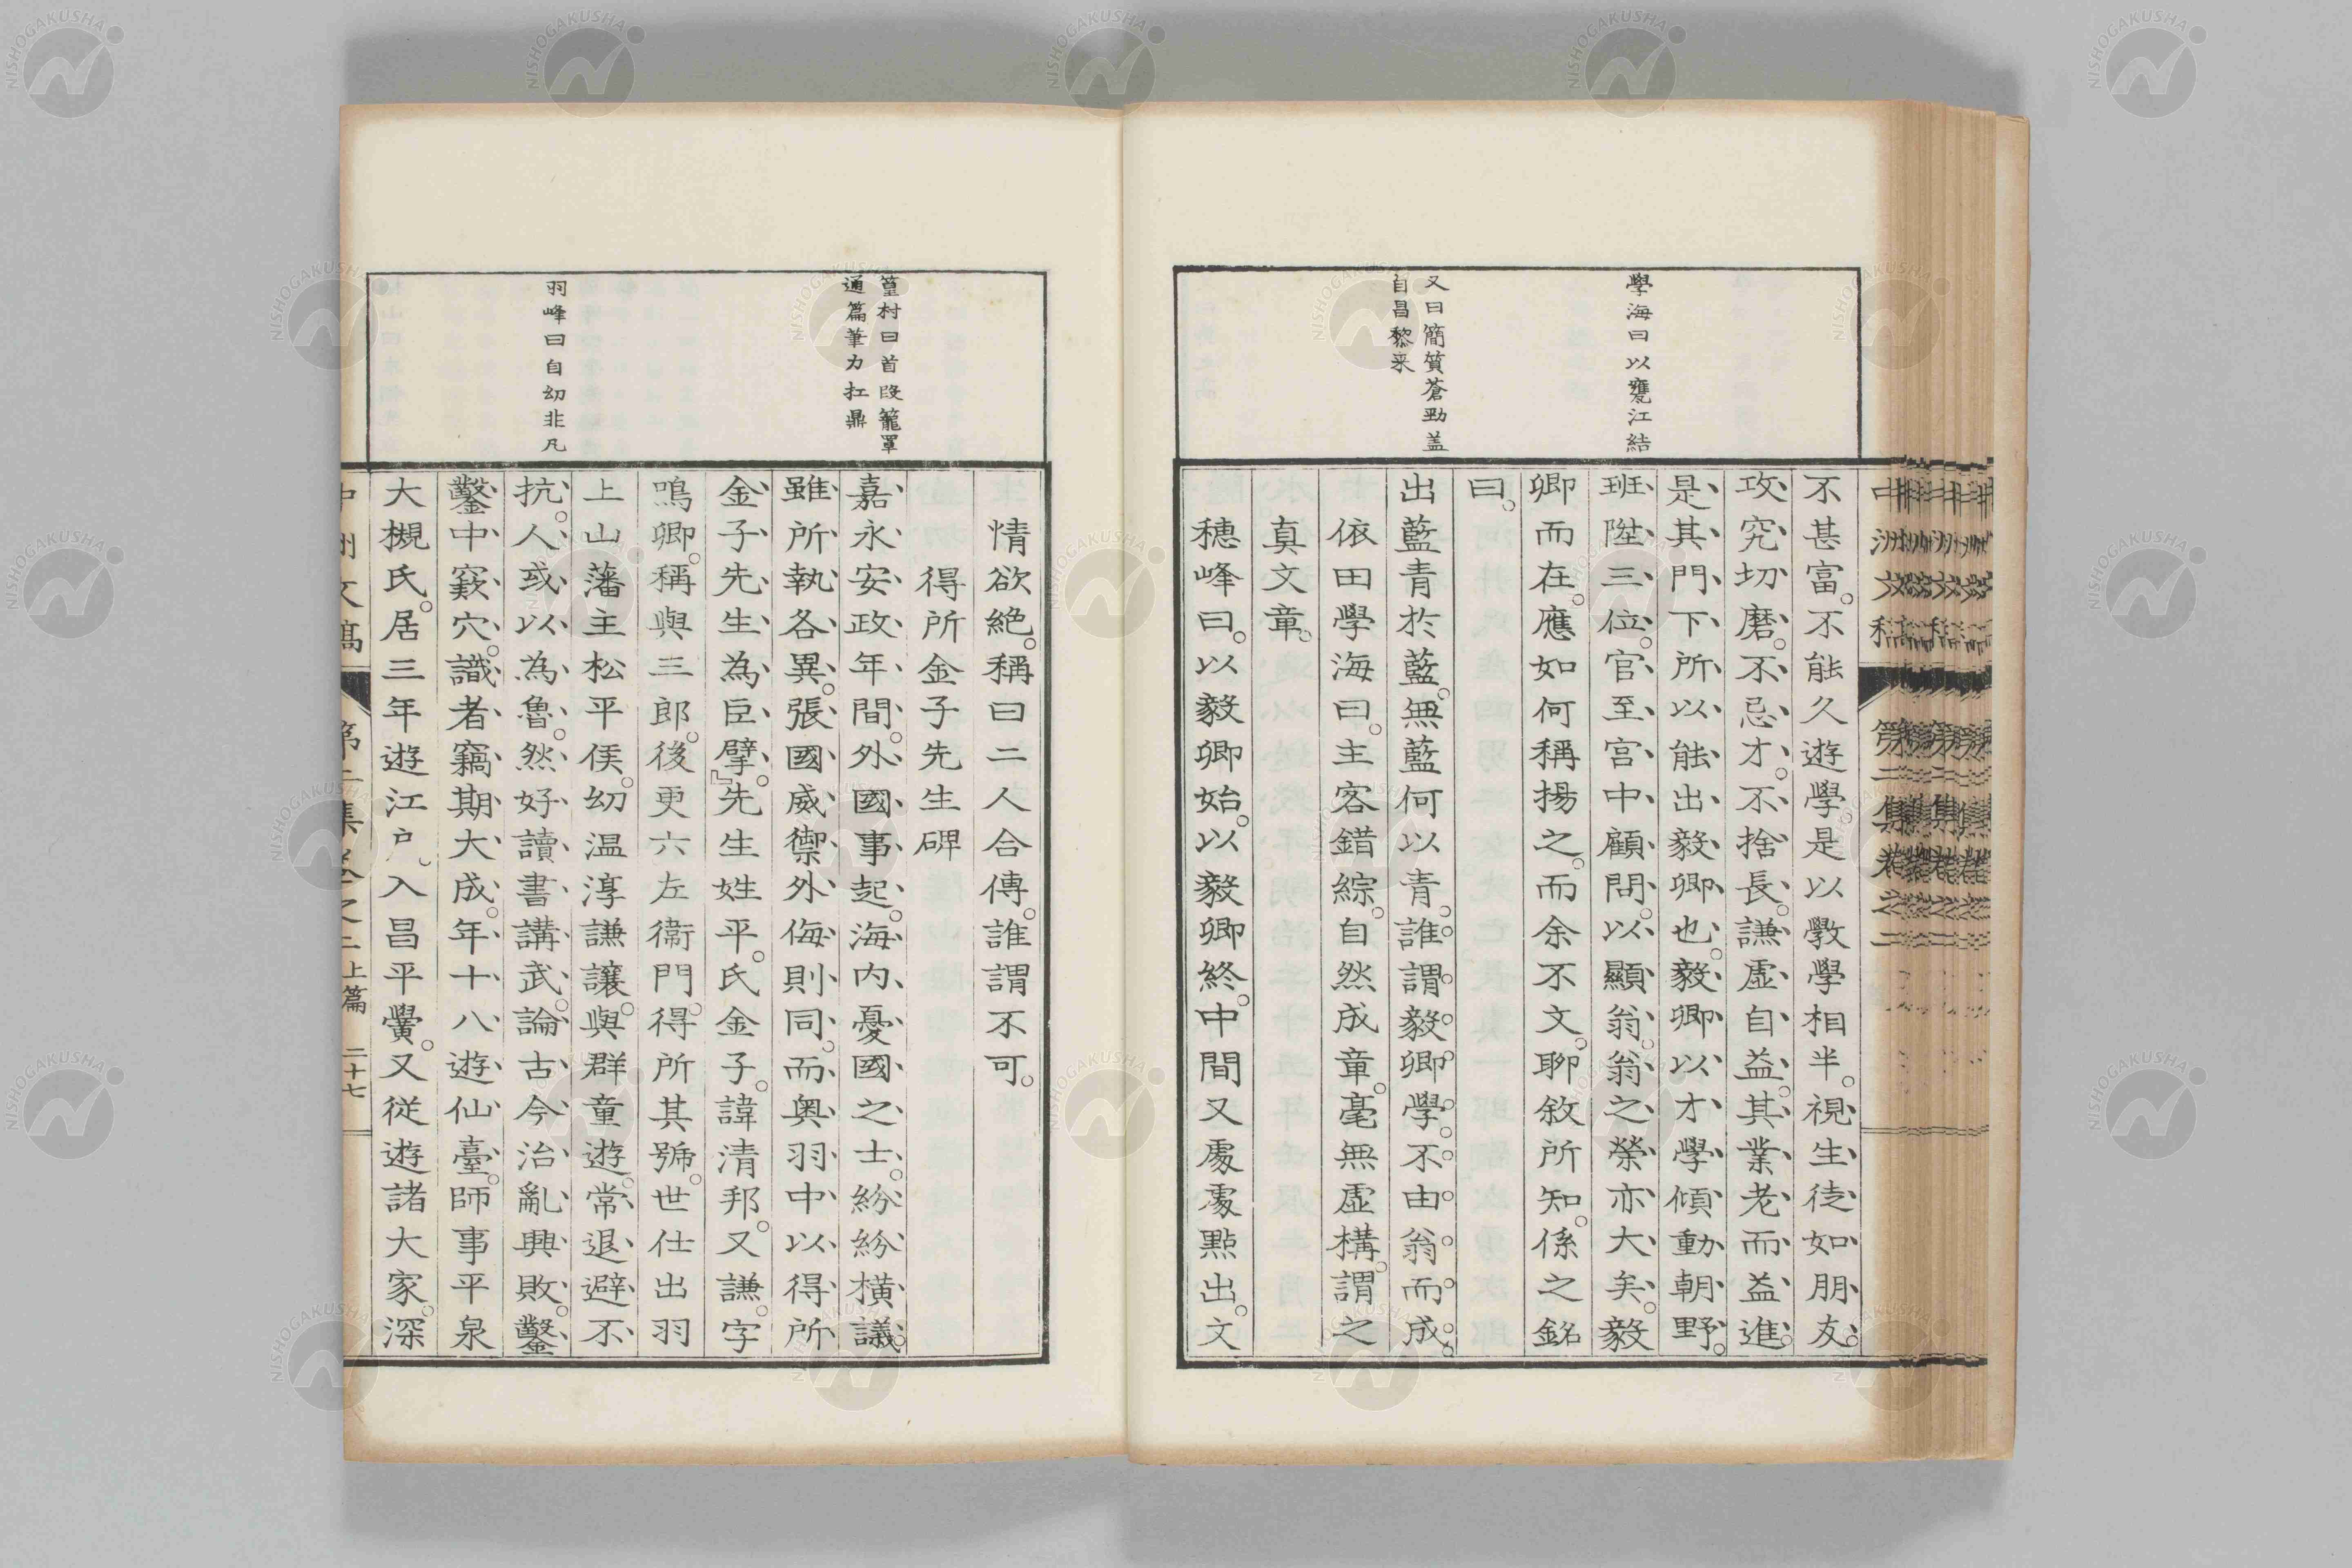 學海曰以甕江結
又曰簡質蒼勁盖
自昌黎来
不甚富。不能久遊學。是以教學相半。視生徒如朋友。
攻究切磨。不忌才。不捨長。謙虛自益。其業老而益進。
是其門下所以能出毅卿也。毅卿以才學傾動朝野。
班陞三位。官至宮中顧問。以顯翁。翁之榮亦大矣。毅
卿而在。應如何稱揚之。而余不文。聊敘所知。係之銘
曰。
出藍青於藍。無藍何以青。誰謂毅卿學。不由翁而成。
依田學海曰。主客錯綜。自然成章。毫無虛構。謂之
真文章。
穗峰曰。以毅卿始。以毅卿終。中間又處處點出。文
篁村曰首段籠罩
通篇筆力扛鼎
羽峰曰自幼非凡
情欲絶。稱曰二人合傳。誰謂不可。
得所金子先生碑
嘉永安政年間。外國事起。海内憂國之士。紛紛橫議。
雖所執各異。張國威禦外侮則同。而奥羽中以得所
金子先生為巨擘。』先生姓平。氏金子。諱清邦。又謙。字
鳴卿。稱與三郎。後更六左衞門。得所其號。世仕出羽
上山藩主松平侯。幼温淳謙讓。與群童遊。常退避不
抗。人或以為魯。然好讀書講武。論古今治亂興敗。鑿
鑿中窾穴。識者竊期大成。年十八遊仙臺。師事平泉
大槻氏。居三年遊江戸。入昌平黌。又從遊諸大家。深
中洲文稿 第二集卷之二上篇 二十七